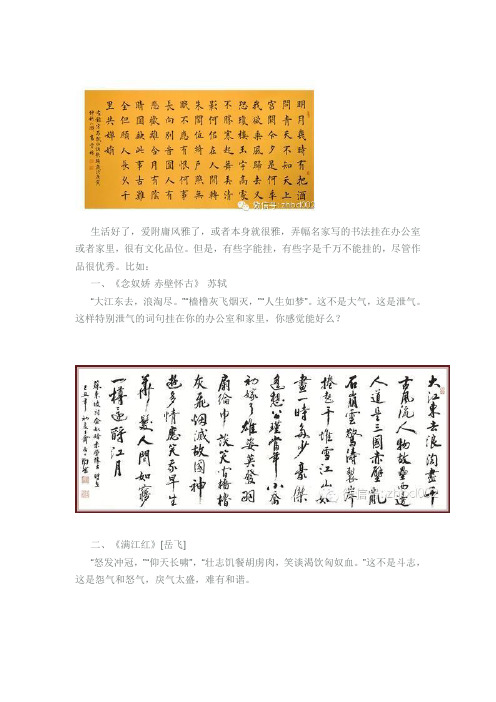 明月幾時有把酒
問青天不知天上
宮闕今夕是何年
我欲乘風歸去又
恐瓊樓玉宇高處
不勝寒起舞弄清
影何似在人間轉
朱閣低綺户照無
眠不應有恨何事
長向别時圓人有
悲歡離合月有陰
晴圓缺此事古難
全但願人長久千
里共嬋娟
生活好了，爱附庸风雅了，或者本身就很雅，弄幅名家写的书法挂在办公室
或者家里，很有文化品位。但是，有些字能挂，有些字是千万不能挂的，尽管作
品很优秀。比如：
一、《念奴娇 赤壁怀古》 苏轼
“大江东去，浪淘尽。”“樯橹灰飞烟灭，”“人生如梦”。这不是大气，这是泄气。
这样特别泄气的词句挂在你的办公室和家里，你感觉能好么？
大江東去浪淘盡千
古風流人物故壘西邊
人道是三國赤壁亂
石崩雲驚濤裂岸
捲起千堆雪江山如
畫一時多少豪傑
遙想公瑾當年小喬
初嫁了雄姿英發羽
扇綸巾談笑間檣櫓
灰飛烟滅故國神
遊多情應笑我早生
華髮人間如夢
一樽還酹江月
二、《满江红》[岳飞]
“怒发冲冠，”“仰天长啸”，“壮志饥餐胡虏肉，笑谈渴饮匈奴血。”这不是斗志，
这是怨气和怒气，戾气太盛，难有和谐。